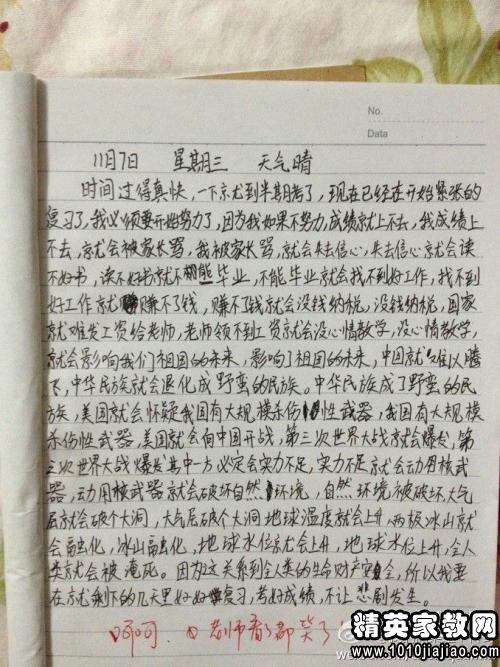 No.
Data
11月7日 星期三 天气晴
时间过得真快，一下就到半期考了，现在已经在开始紧张的
复习了，我必须要开始努力了，因为我如果不努力，成绩就上不去，我成绩上
不去，就会被家长骂，我被家长骂，就会失去信心，失去信心就会读
不好书，读不好书就不能毕业，不能毕业就会找不到好工作，找不到
好工作就赚不了钱，赚不了钱就会没钱纳税，没钱纳税，国家
就难发工资给老师，老师领不到工资就会没心情教学，没心情教学，
就会影响我们祖国的未来，影响了祖国的未来，中国就难以腾
飞，中华民族就会退化成野蛮的民族。中华民族成了野蛮的民
族，美国就会怀疑我国有大规模杀伤性武器，我国有大规模
杀伤性武器，美国就会向中国开战，第三次世界大战就会爆发，第
三次世界大战爆发其中一方必定会实力不足，实力不足就会动用核武
器，动用核武器就会破坏自然环境，自然环境被破坏，大气
层就会破个大洞，大气层破个大洞地球温度就会上升，两极冰山就
会融化，冰山融化，地球水位就会上升，地球水位上升，全人
类就会被淹死。因为这关系到全人类的生命财产安全，所以我要
在就剩下的几天里好好复习，考好成绩，不让悲剧发生。
呵呵，老师看了都笑了
精英家教网
www.1010jiajiao.com